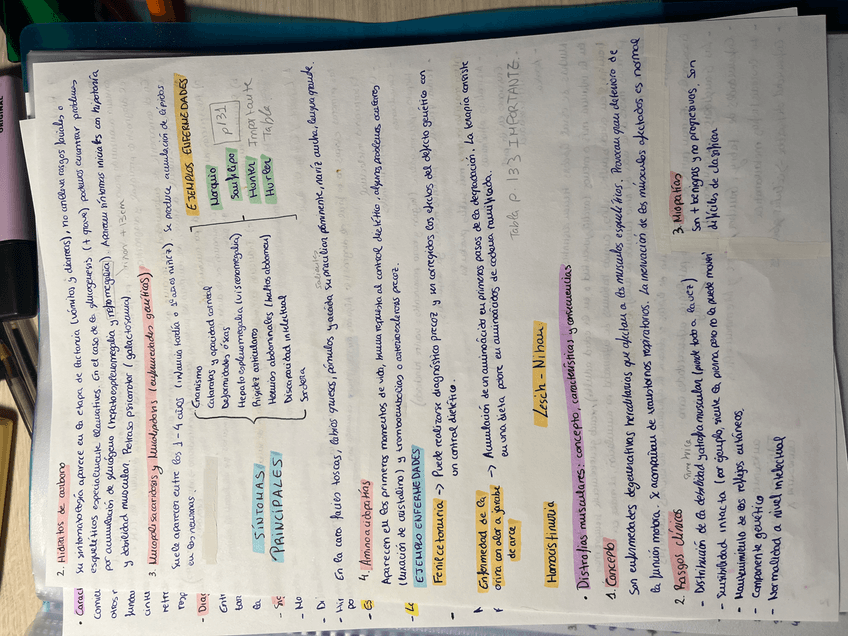 2. Hidratos de carbono
Su sintomatología aparece en la etapa de lactancia (vómitos y diarreas), no conlleva rasgos faciales o
esqueléticos especialmente llamativos. En el caso de la glucogenesis (+ grave) podemos encontrar problemas
por acumulación de glucógeno (hepatoesplenomegalia y nefromegalia). Aparecen síntomas iniciales con hipotonía
y debilidad muscular. Retraso psicomotor (galactosemia)
3. Mucopolisacaridosis y mucolipidosis (enfermedades genéticas)
Suele aparecer entre los 1-4 años (infancia tardía o 1os años niñez). Se produce acumulación de lípidos
en las neuronas.
SÍNTOMAS
PRINCIPALES
Enanismo
Cataratas y opacidad corneal
Deformidades óseas
Hepatoesplenomegalia (visceromegalia)
Rigidez articulares
Hernias abdominales (bultos abdomen)
Discapacidad intelectual
Sordera
EJEMPLOS ENFERMEDADES
Morquio
Sanfilipo
Hunter
Hurler
p131
Importante
Tabla
En la cara: facies toscas, labios gruesos, pómulos y arcada supraciliar prominente, nariz ancha, lengua grande.
4. Aminoacidopatías
Aparecen en los primeros momentos de vida, buena respuesta al control dietético, algunos problemas oculares
(luxación de cristalino) y tromboembolias o arterioesclerosis precoz.
EJEMPLO ENFERMEDADES
Fenilcetonuria -> Puede realizarse diagnóstico precoz y son corregidos los efectos del defecto genético con
un control dietético.
Enfermedad de la
orina con olor a jarabe
de arce
-> Acumulación de un aminoácido en primeros pasos de la degradación. La terapia consiste
en una dieta pobre en aminoácidos de cadena ramificada.
Homocistinuria
Lesch-Nihan
Tabla p 133 IMPORTANTE.
• Distrofias musculares: concepto, características y consecuencias
1. Concepto
Son enfermedades degenerativas hereditarias que afectan a los músculos esqueléticos. Provocan gran deterioro de
la función motora. Se acompañan de transtornos respiratorios. La inervación de los músculos afectados es normal
2. Rasgos clínicos
- Distribución de la debilidad y atrofia muscular (puede todo a la vez)
- Sensibilidad intacta (por ejemplo, siente la pierna pero no la puede mover)
- Mantenimiento de los reflejos cutáneos
- Componente genético
- Normalidad a nivel intelectual
3. Miopatías
Son + benignas y no progresivas. Son
difíciles de clasificar